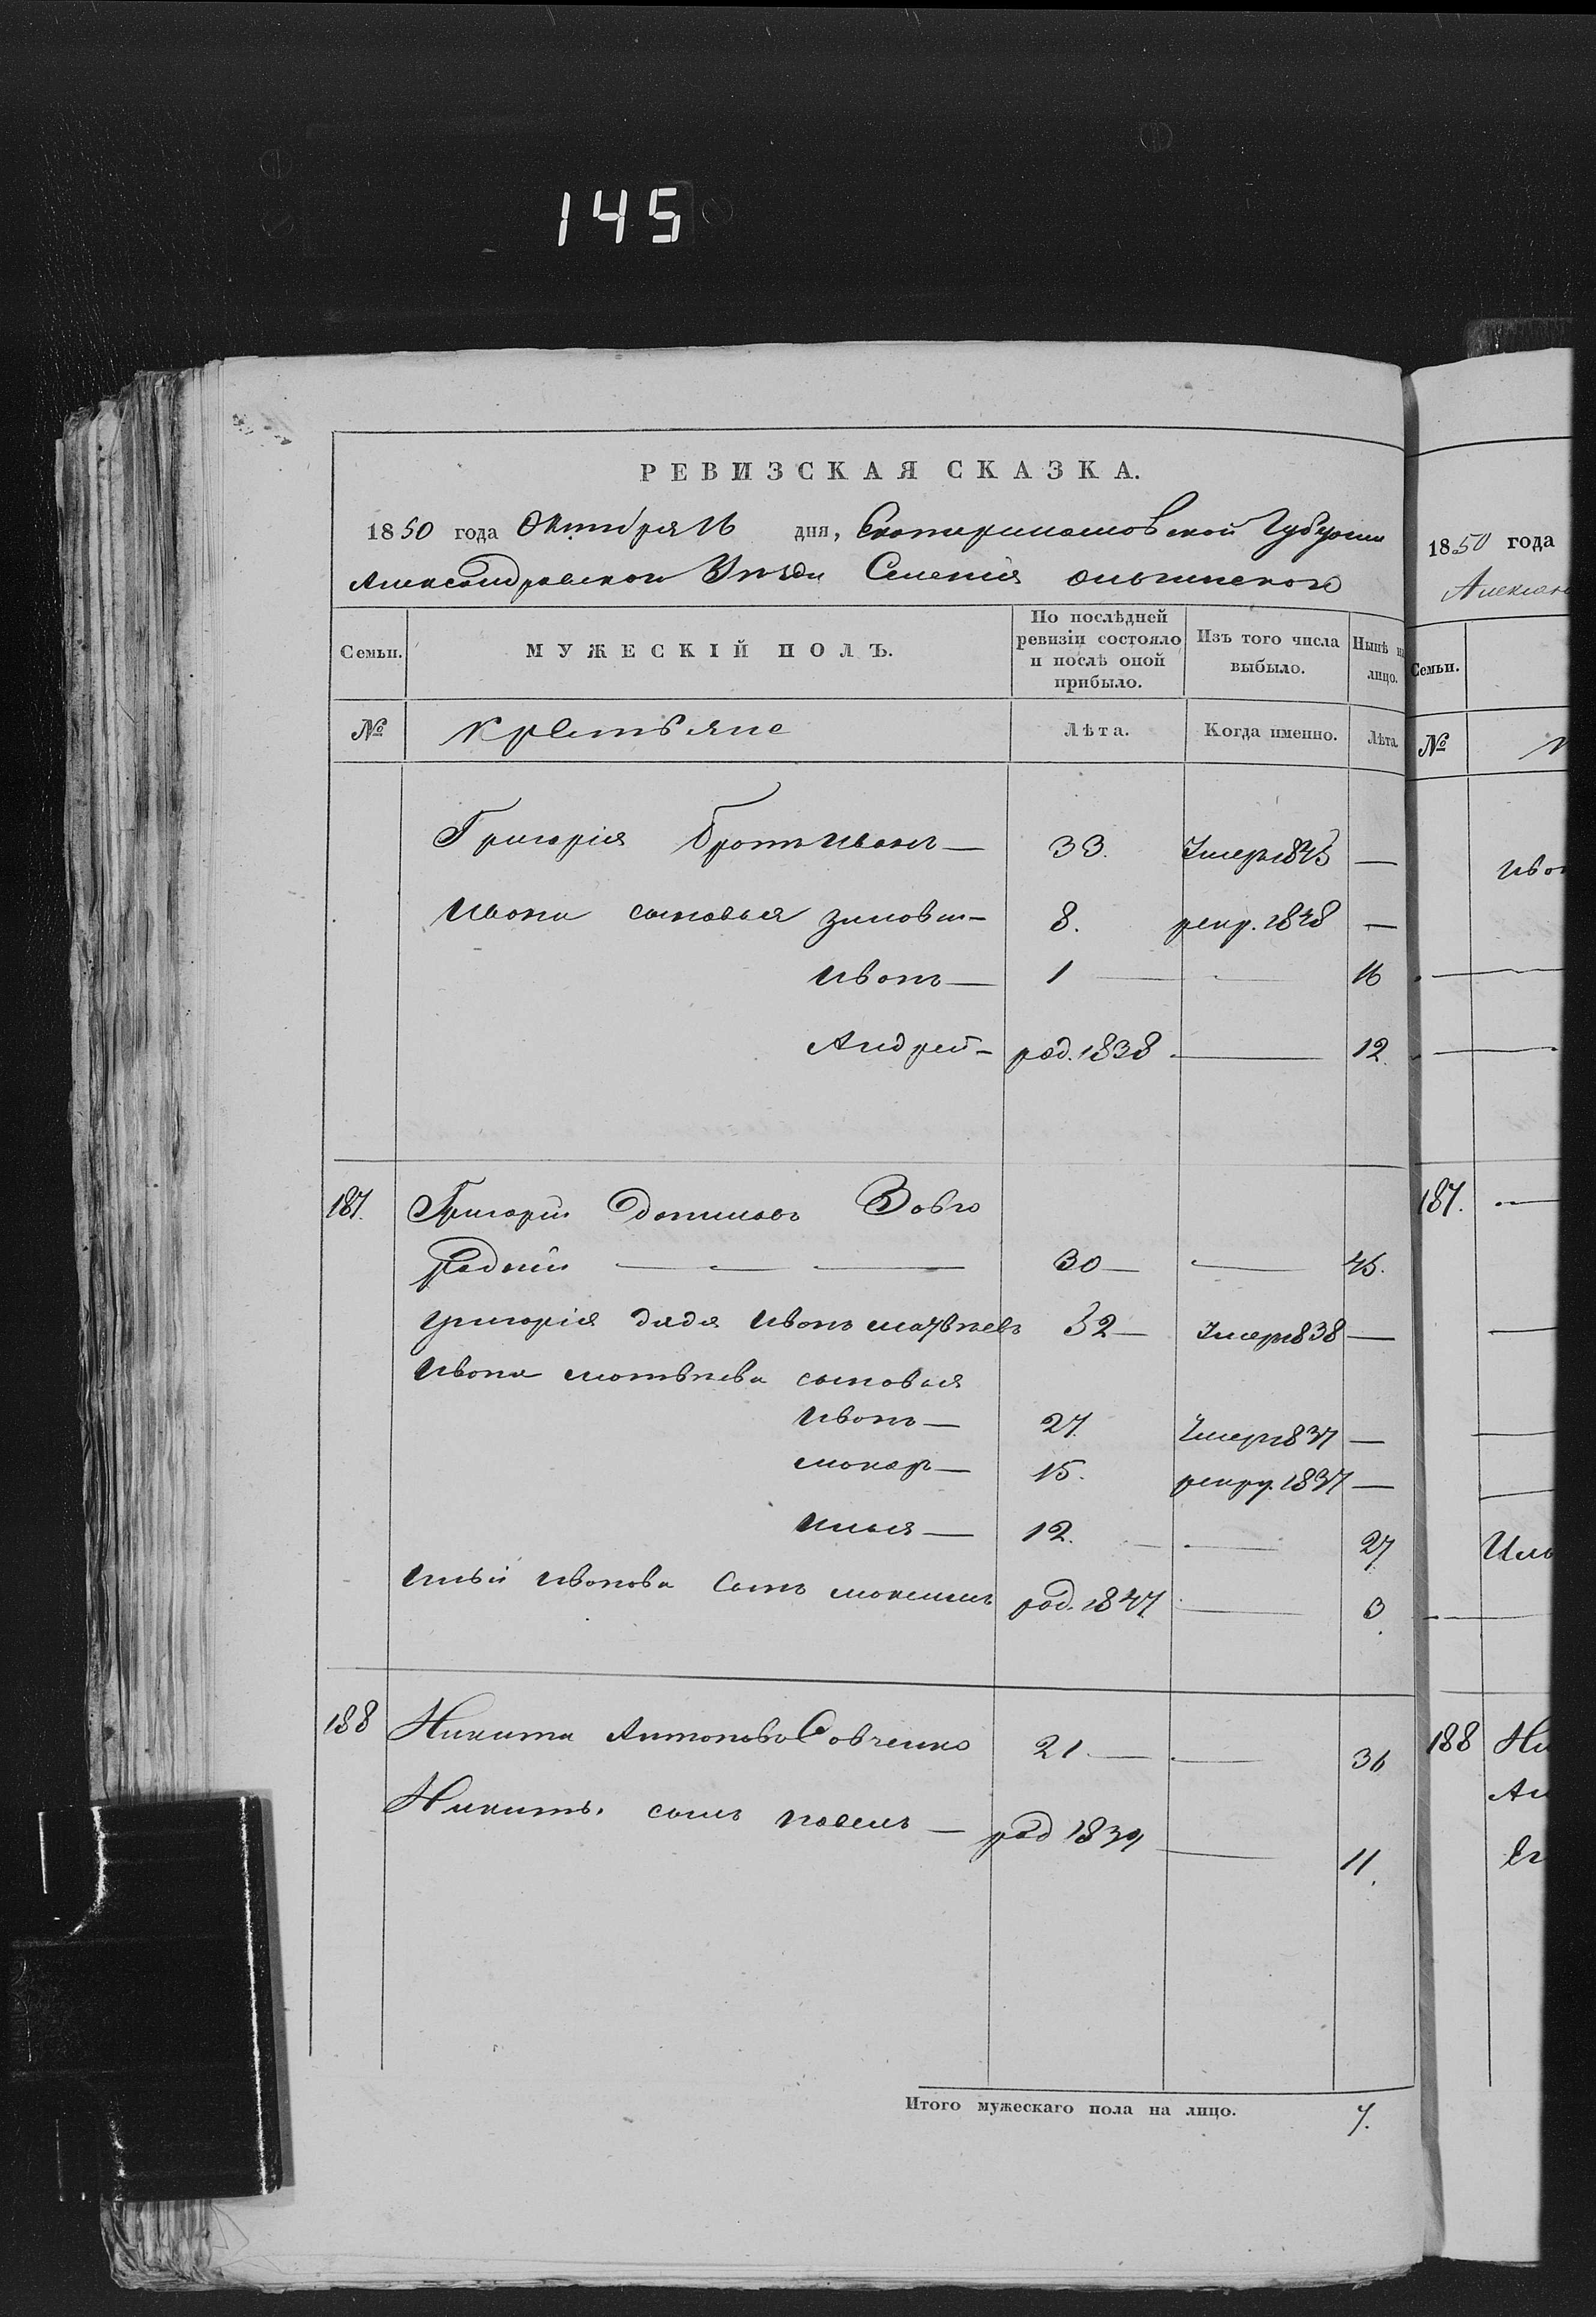 145
РЕВИЗСКАЯ СКАЗКА.
1850 года Октября 16 дня, Екатеринославской Губернии
Александровского Уезда Селения Ольгинского
Семьи. МУЖЕСКІЙ ПОЛЪ. По послѣдней ревизіи состояло и послѣ оной прибыло. Изъ того числа выбыло. Нынѣ на лицо.
№ Крестьяне Лѣта. Когда именно. Лѣта.
Григорія братъ Иванъ — 33. Умеръ 1845 —
Ивана сыновья Зиновий — 8. рекр. 1848 —
Иванъ — 1 — 16
Андрей — род. 1838 — 12.
187. Григорій Даниловъ Вовко
30 — 45.
Григорія дядя Иванъ Матвѣевъ 52 — Умеръ 1838 —
Ивана Матвѣева сыновья
Иванъ — 27. Умеръ 1837 —
Макаръ — 15. рекру. 1837 —
Илья — 12. — 27
Ильи Иванова сынъ Максимъ род. 1847 — 3
188 Никита Антоновъ Савченко 21 — 36
Никиты сынъ Павелъ — род 1839 — 11.
Итого мужескаго пола на лицо. 7.
1850 года
Семьи.
№
187.
188